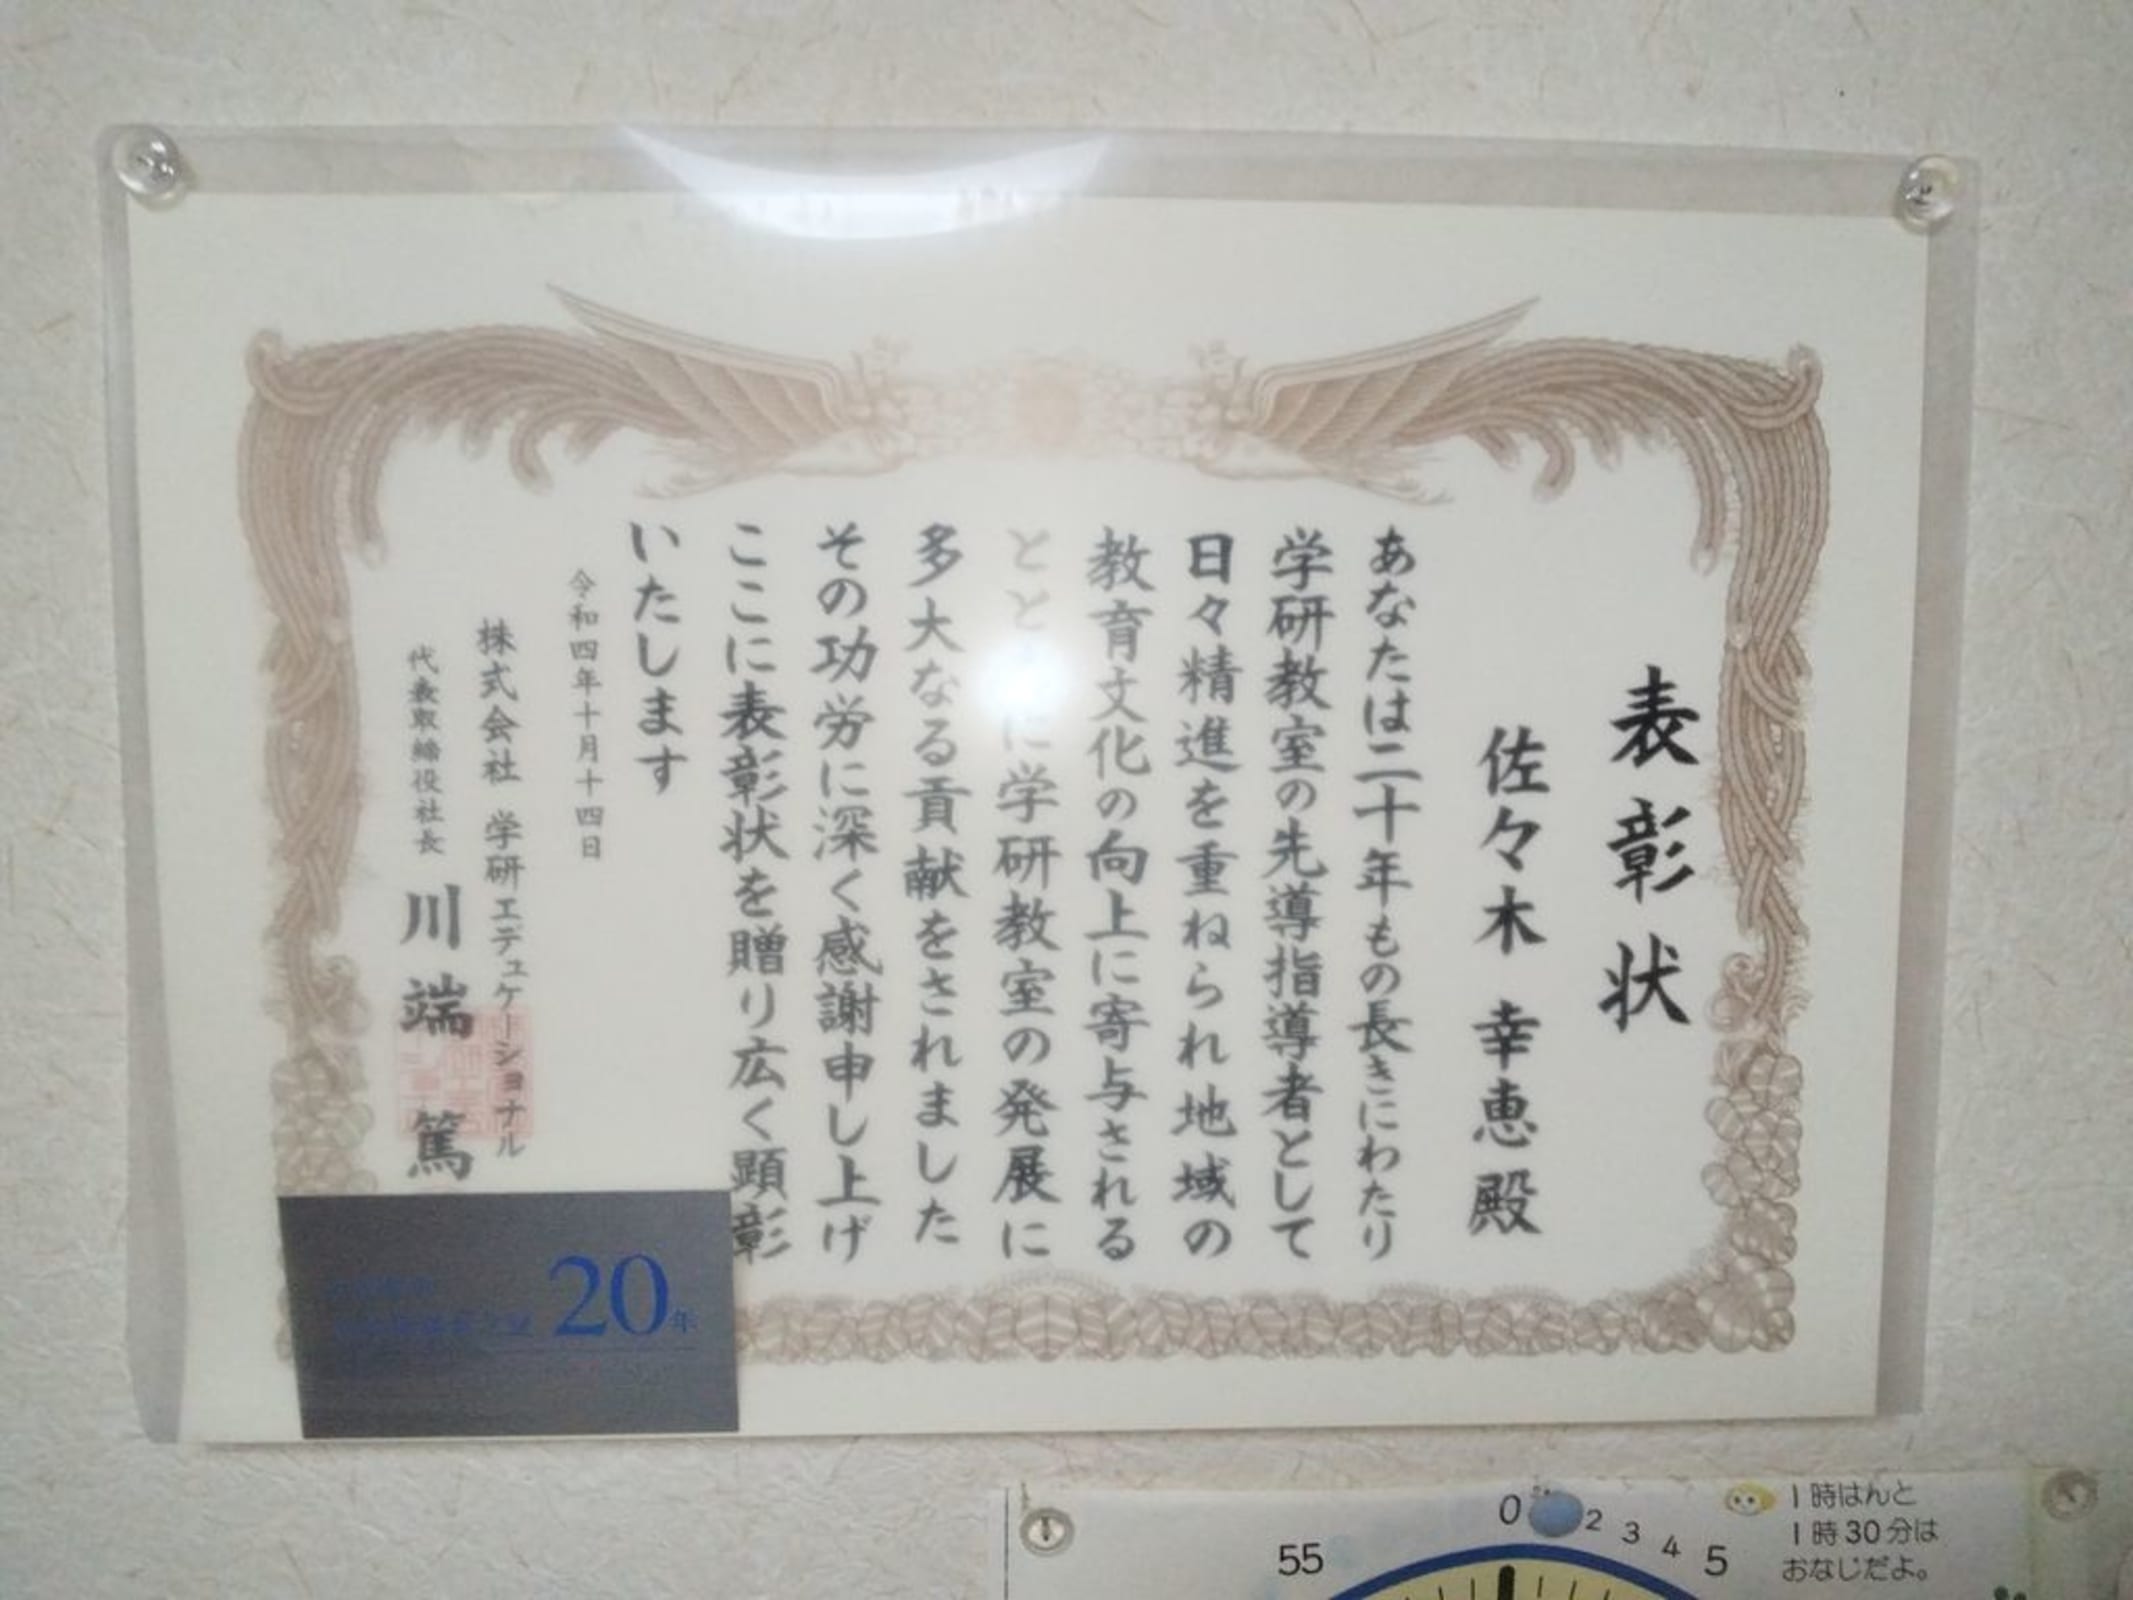 表彰状
佐々木 幸恵 殿
あなたは二十年もの長きにわたり
学研教室の先導指導者として
日々精進を重ねられ地域の
教育文化の向上に寄与される
とと に学研教室の発展に
多大なる貢献をされました
その功労に深く感謝申し上げ
ここに表彰状を贈り広く顕彰
いたします
令和四年十月十四日
株式会社 学研エデュケーショナル
代表取締役社長 川端 篤
20年
0 2 3 4 5
55
1時はんと
1時30分は
おなじだよ。